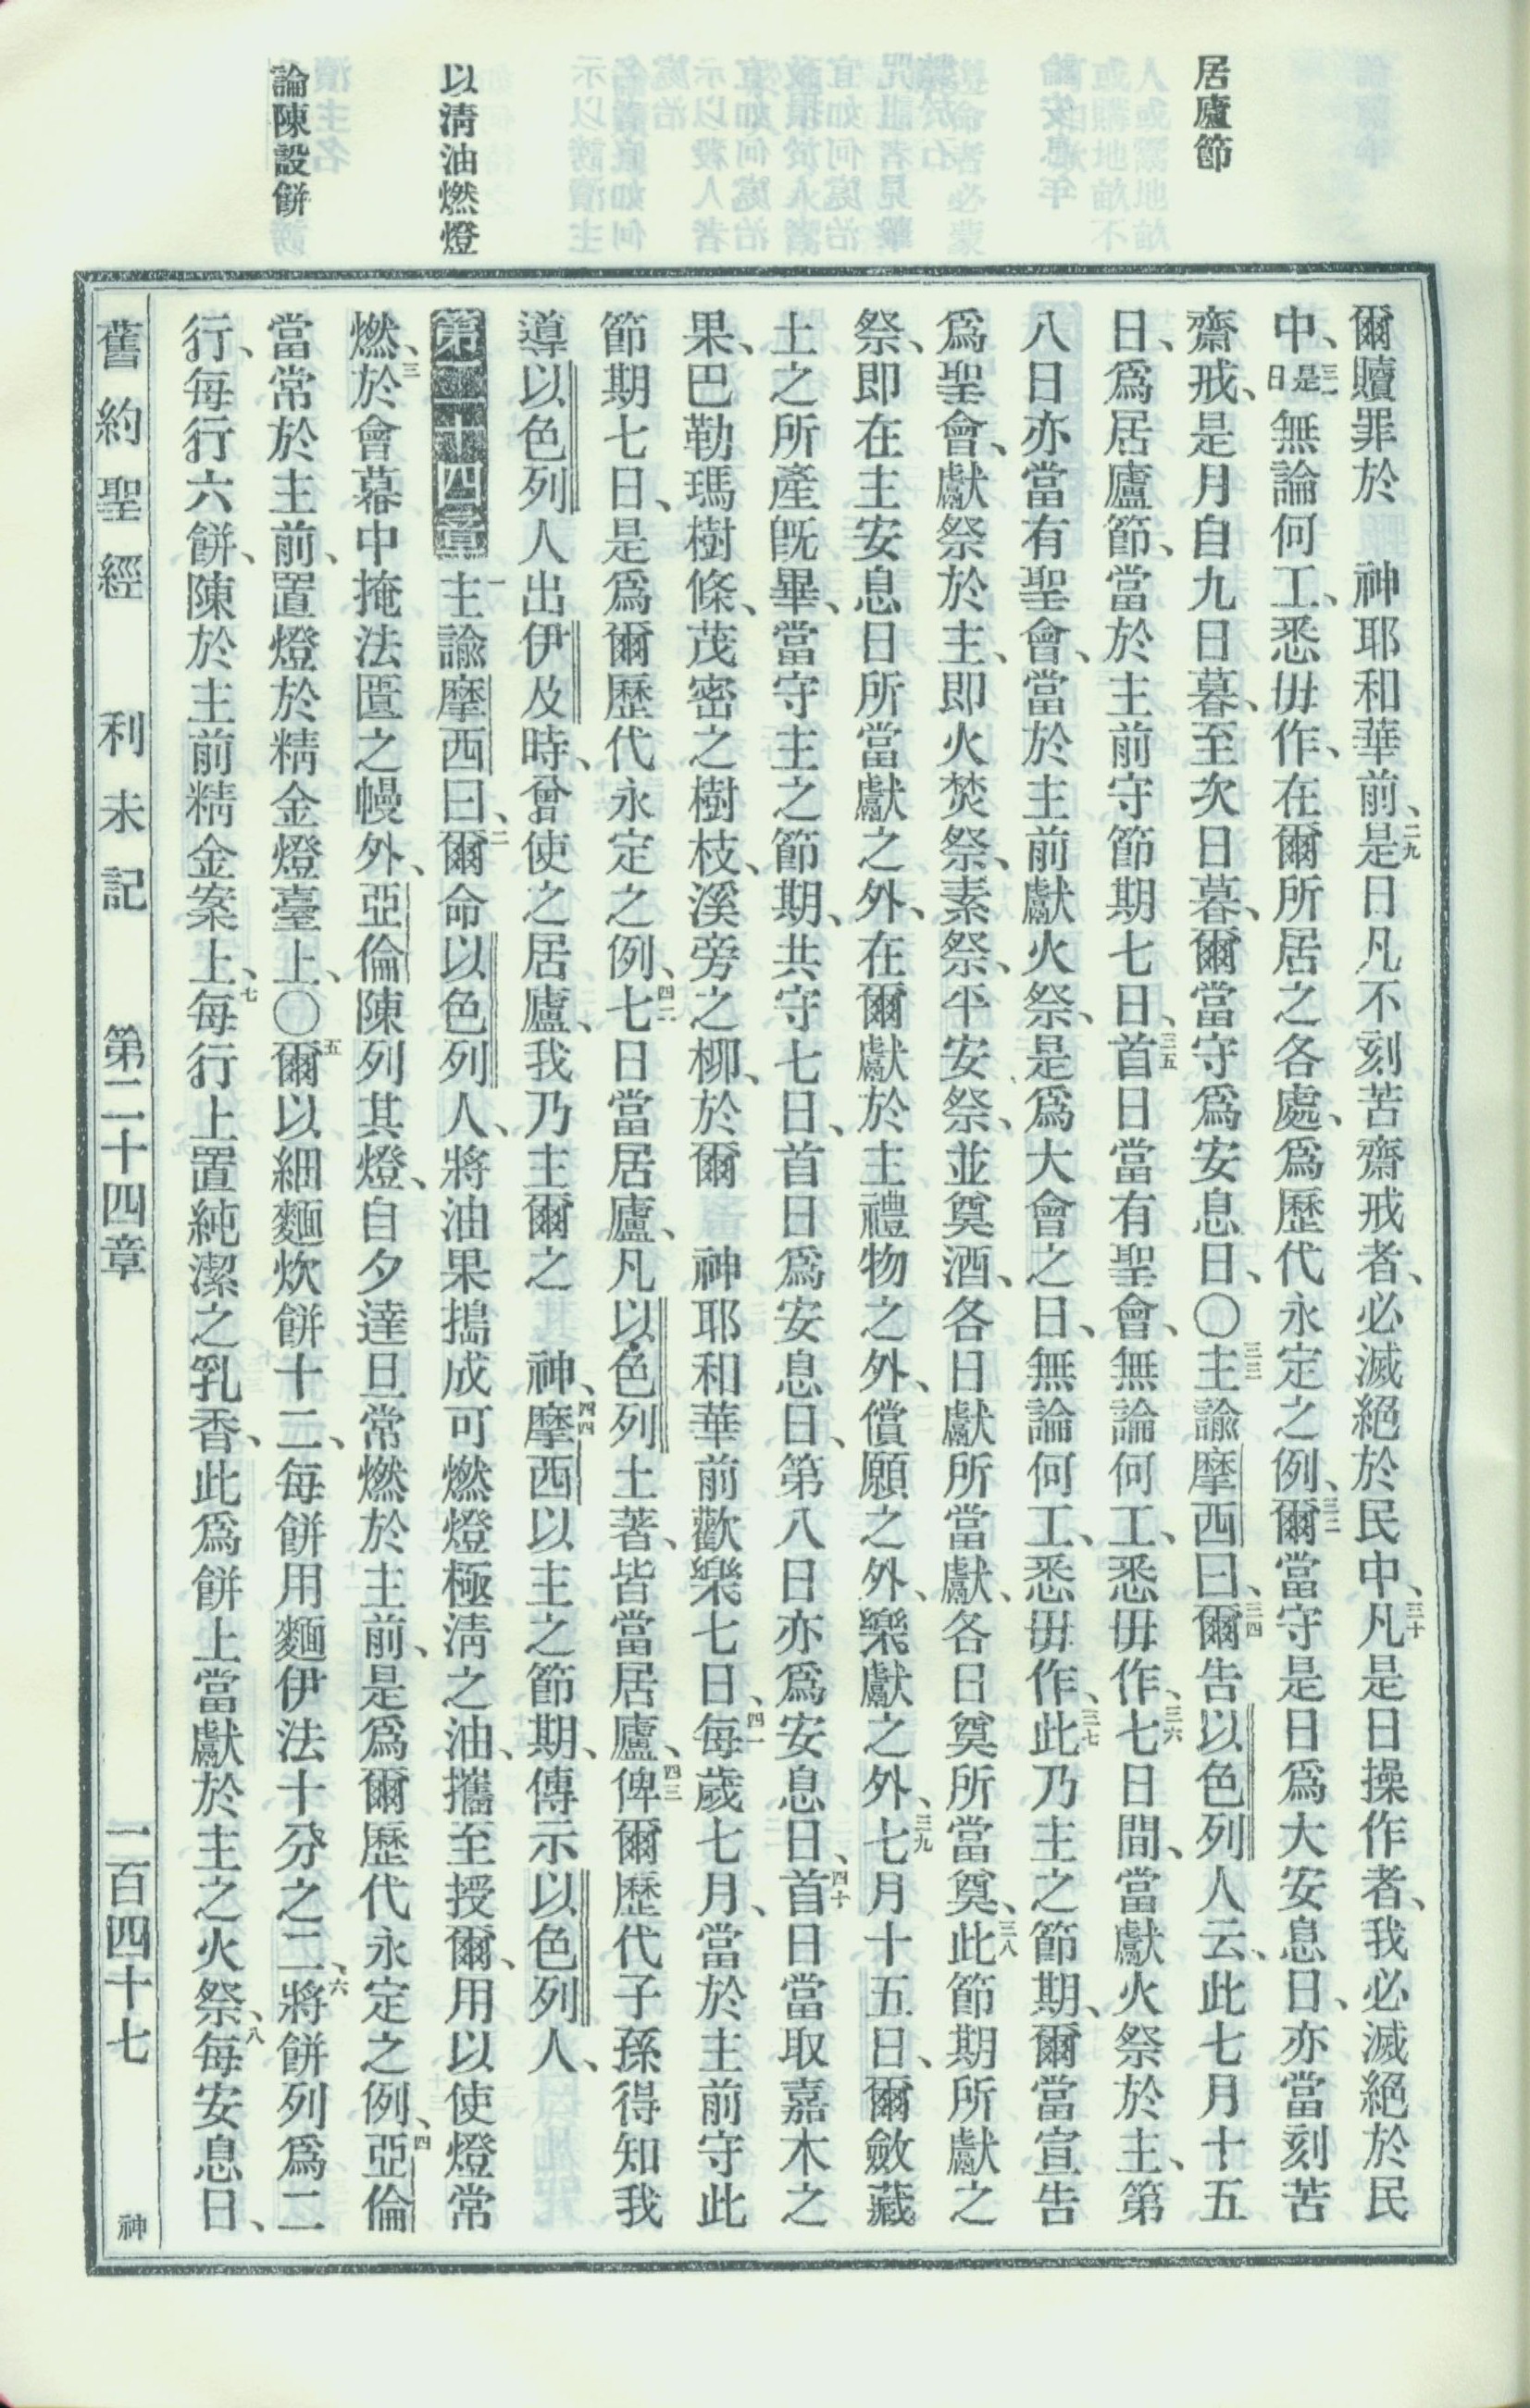 居廬節
以清油燃燈
論陳設餅
爾贖罪於　神耶和華前、二九是日凡不刻苦齋戒者、必滅絕於民中、三十凡是日操作者、我必滅絕於民
中、三一是日無論何工、悉毋作、在爾所居之各處、爲歷代永定之例、三二爾當守是日爲大安息日、亦當刻苦
齋戒、是月自九日暮、至次日暮、爾當守爲安息日、〇三三主諭摩西曰、三四爾告以色列人云、此七月十五
日、爲居廬節、當於主前守節期七日、三五首日當有聖會、無論何工、悉毋作、三六七日間、當獻火祭於主、第
八日亦當有聖會、當於主前獻火祭、是爲大會之日、無論何工、悉毋作、三七此乃主之節期、爾當宣告
爲聖會、獻祭於主、即火焚祭、素祭、平安祭、並奠酒、各日獻所當獻、各日奠所當奠、三八此節期所獻之
祭、即在主安息日所當獻之外、在爾獻於主禮物之外、償願之外、樂獻之外、三九七月十五日、爾斂藏
土之所產旣畢、當守主之節期、共守七日、首日爲安息日、第八日亦爲安息日、四十首日當取嘉木之
果、巴勒瑪樹條、茂密之樹枝、溪旁之柳、於爾　神耶和華前歡樂七日、四一每歲七月、當於主前守此
節期七日、是爲爾歷代永定之例、四二七日當居廬、凡以色列土著、皆當居廬、四三俾爾歷代子孫得知我
導以色列人出伊及時、曾使之居廬、我乃主爾之　神、四四摩西以主之節期、傳示以色列人、
第二十四章　一主諭摩西曰、二爾命以色列人、將油果搗成可燃燈極清之油、攜至授爾、用以使燈常
燃、三於會幕中掩法匱之幔外、亞倫陳列其燈、自夕達旦常燃於主前、是爲爾歷代永定之例、四亞倫
當常於主前、置燈於精金燈臺上、〇五爾以細麵炊餅十二、每餅用麵伊法十分之二、六將餅列爲二
行、每行六餅、陳於主前精金案上、七每行上置純潔之乳香、此爲餅上當獻於主之火祭、八每安息日、
舊約聖經　利未記　第二十四章　一百四十七　神